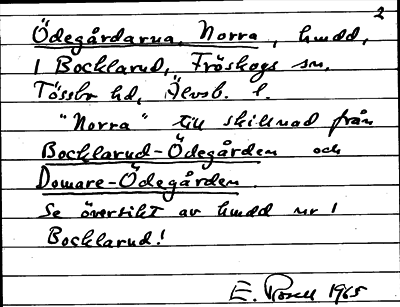 2
Ödegårdarna, Norra, hmdd,
1 Bocklarud, Fröskogs sn.
Tössbo hd, Älvsb. l.
"Norra" till skillnad från
Bocklarud-Ödegården och
Domare-Ödegården.
Se översikt av hmdd nr 1
Bocklarud!
E. Rosell 1965